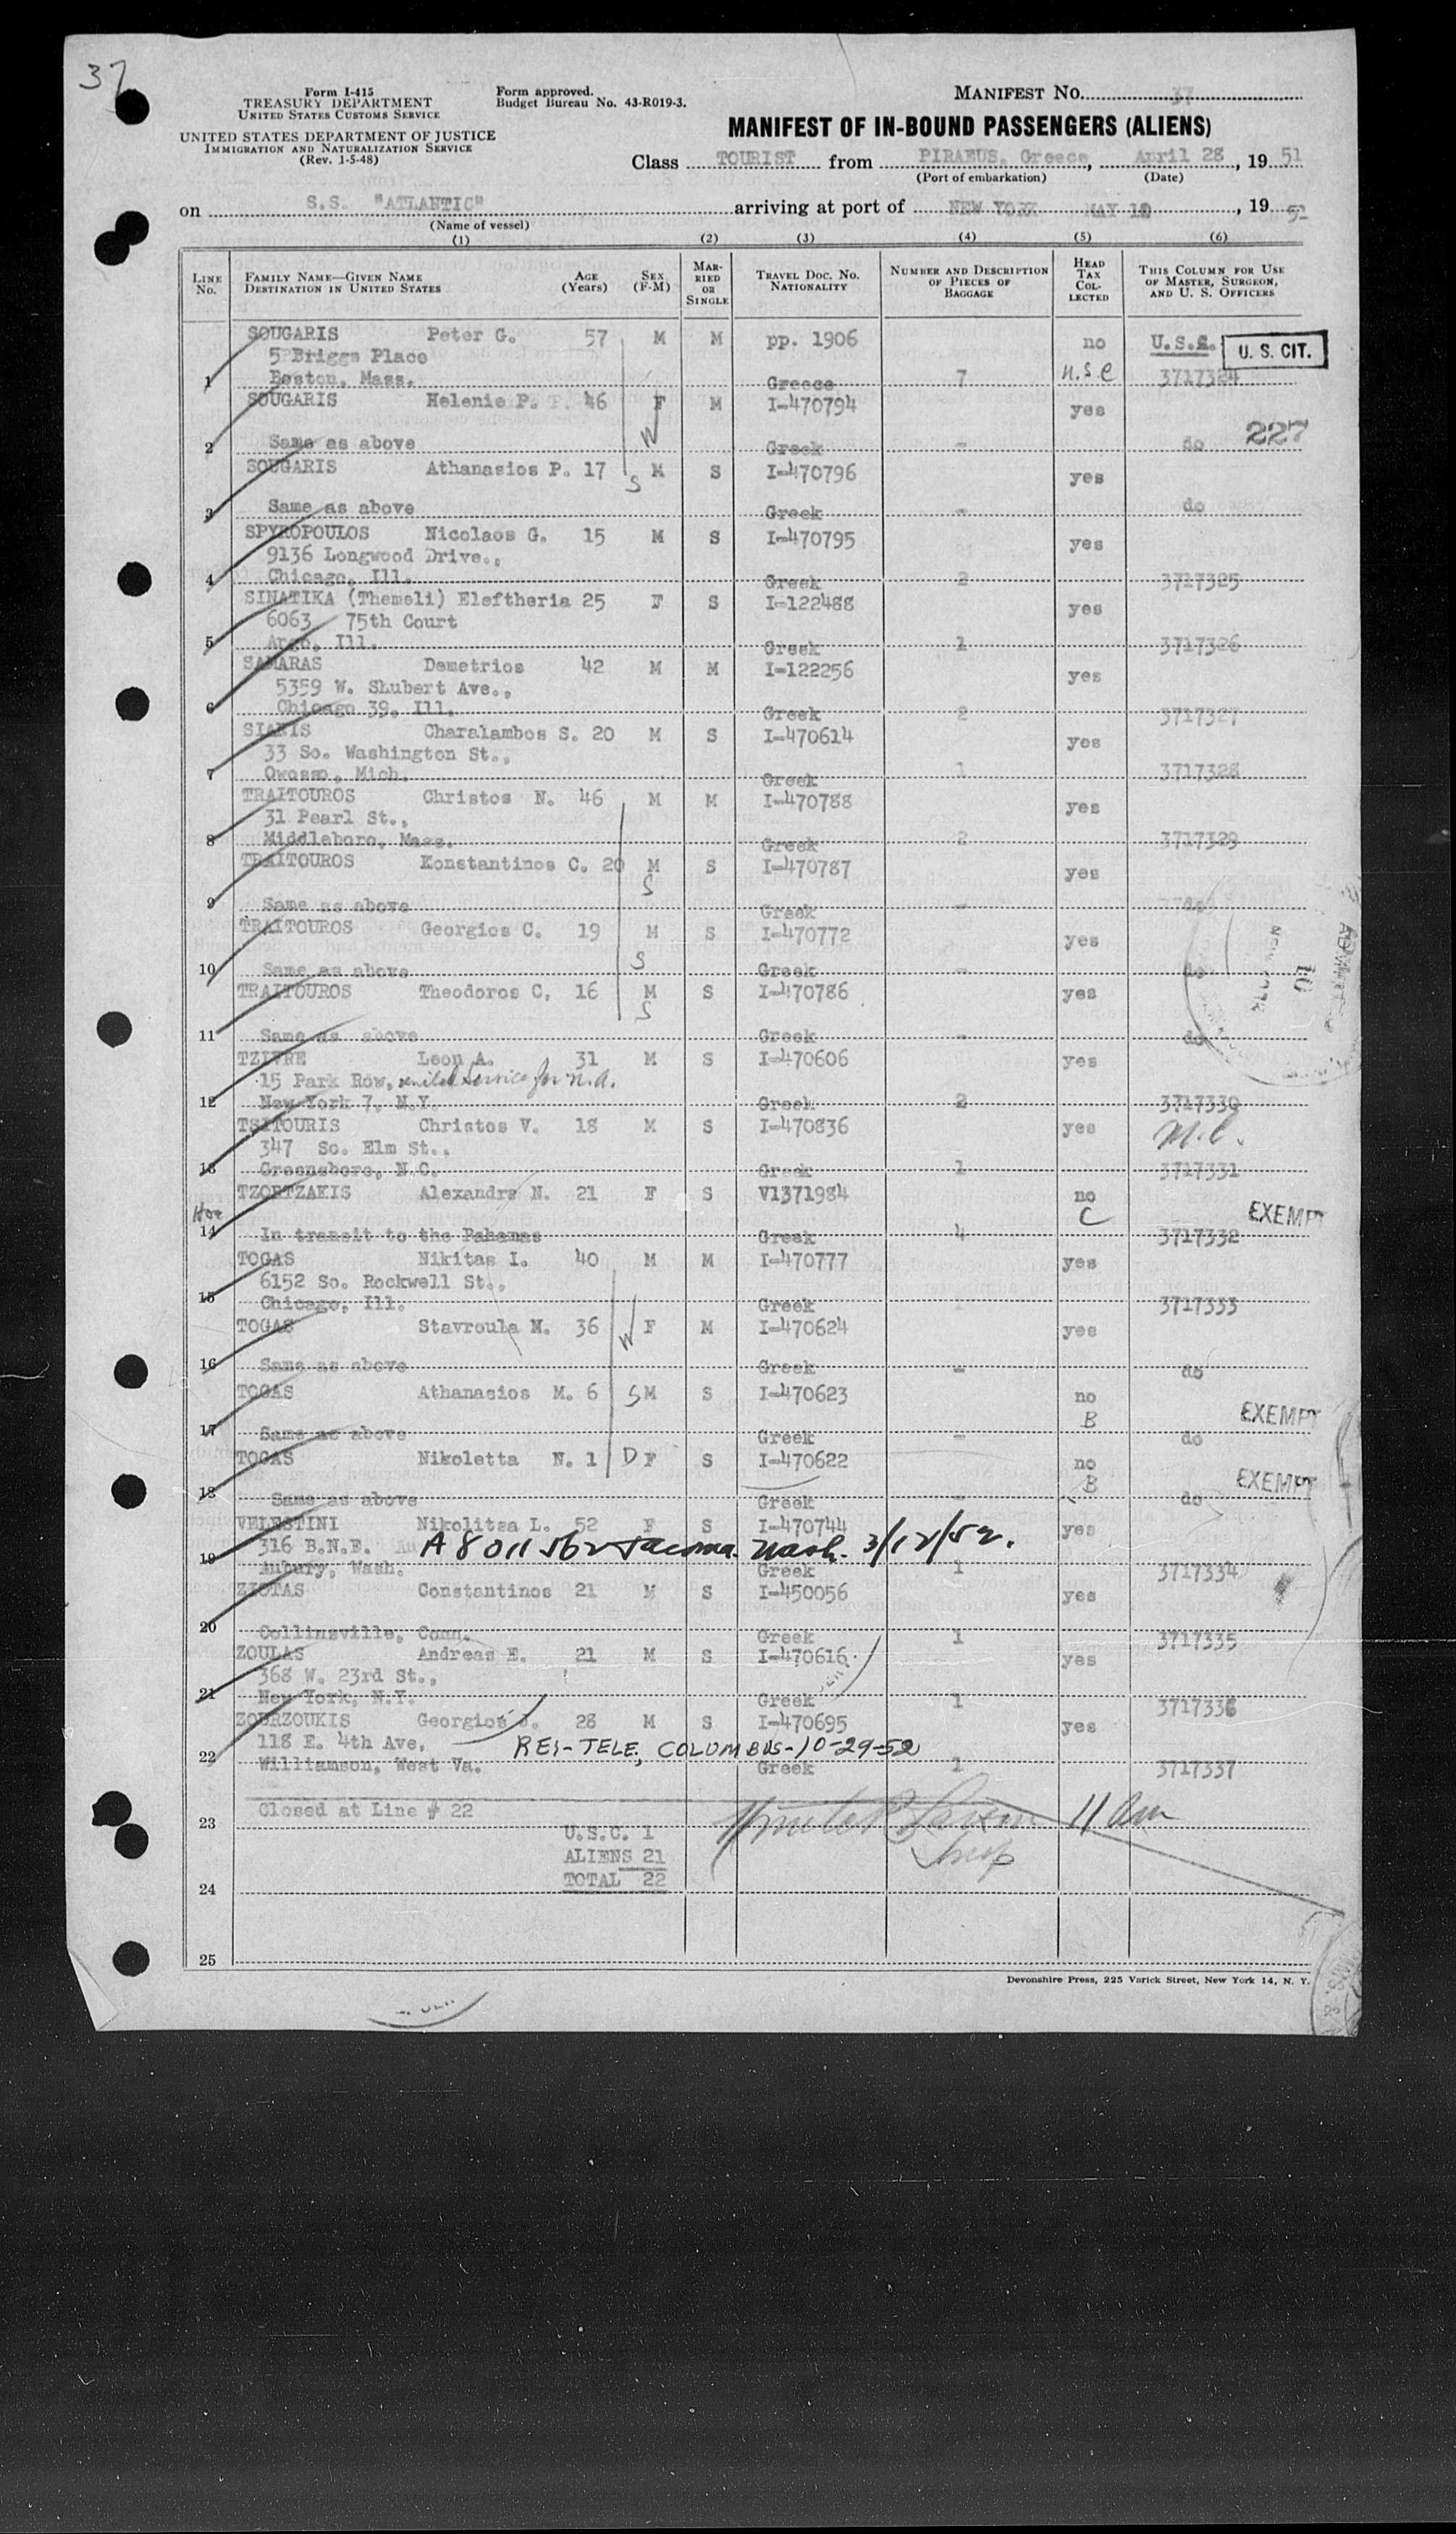 37
Form I-415
TREASURY DEPARTMENT
UNITED STATES CUSTOMS SERVICE
UNITED STATES DEPARTMENT OF JUSTICE
IMMIGRATION AND NATURALIZATION SERVICE
(Rev. 1-5-48)
Form approved.
Budget Bureau No. 43-R019-3.
MANIFEST No. 37
MANIFEST OF IN-BOUND PASSENGERS (ALIENS)
Class TOURIST from PIRAEUS, Greece, April 28, 19 51
(Port of embarkation) (Date)
on S.S. "ATLANTIC" arriving at port of NEW YORK MAY 10, 19
(Name of vessel)
(1) (2) (3) (4) (5) (6)
LINE No. FAMILY NAME—GIVEN NAME DESTINATION IN UNITED STATES AGE (Years) SEX (F-M) MARRIED OR SINGLE TRAVEL DOC. No. NATIONALITY NUMBER AND DESCRIPTION OF PIECES OF BAGGAGE HEAD TAX COLLECTED THIS COLUMN FOR USE OF MASTER, SURGEON, AND U. S. OFFICERS
SOUGARIS Peter G. 57 M M pp. 1906 no U.S.C. U. S. CIT.
5 Briggs Place
1 Boston, Mass. Greece 7 U.S.C 3717324
SOUGARIS Helenie P. 46 F M I-470794 yes
W
2 Same as above Greek - do 227
SOUGARIS Athanasios P. 17 M S I-470796 yes
S
3 Same as above Greek - do
SPYROPOULOS Nicolaos G. 15 M S I-470795 yes
9136 Longwood Drive.,
4 Chicago, Ill. Greek 2 3717325
SINATIKA (Themeli) Eleftheria 25 F S I-122488 yes
6063 75th Court
5 Argo, Ill. Greek 1 3717326
SAMARAS Demetrios 42 M M I-122256 yes
5359 W. Shubert Ave.,
6 Chicago 39, Ill. Greek 2 3717327
SIAKIS Charalambos S. 20 M S I-470614 yes
33 So. Washington St.,
7 Owosso, Mich. Greek 1 3717328
TRAITOUROS Christos N. 46 M M I-470788 yes
31 Pearl St.,
8 Middleboro, Mass. Greek 2 3717329
TRAITOUROS Konstantinos C. 20 M S I-470787 yes
S
9 Same as above Greek - do
TRAITOUROS Georgios C. 19 M S I-470772 yes
S
10 Same as above Greek - do
TRAITOUROS Theodoros C. 16 M S I-470786 yes
S
11 Same as above Greek - do
TZIVRE Leon A. 31 M S I-470606 yes
15 Park Row, United Service for N.A.
12 New York 7, N.Y. Greek 2 3717330
TSITOURIS Christos V. 18 M S I-470836 yes M.C.
347 So. Elm St.,
13 Greensboro, N.C. Greek 1 3717331
TZORTZAKIS Alexandra N. 21 F S V1371984 no
C EXEMPT
14 In transit to the Bahamas Greek 4 3717332
TOGAS Nikitas I. 40 M M I-470777 yes
6152 So. Rockwell St.,
15 Chicago, Ill. Greek - 3717333
TOGAS Stavroula N. 36 W F M I-470624 yes
16 Same as above Greek - do
TOGAS Athanasios M. 6 S M S I-470623 no
B EXEMPT
17 Same as above Greek - do
TOGAS Nikoletta N. 1 D F S I-470622 no
B EXEMPT
18 Same as above Greek - do
VELESTINI Nikolitsa L. 52 F S I-470744 yes
316 B.N.E. A8011562 Tacoma. Wash. 3/12/52.
19 Aubury, Wash. Greek 1 3717334
ZIOTAS Constantinos 21 M S I-450056 yes
20 Collinsville, Conn. Greek 1 3717335
ZOULAS Andreas E. 21 M S I-470616 yes
368 W. 23rd St.,
21 New York, N.Y. Greek 1 3717336
ZOURZOUKIS Georgios J. 28 M S I-470695 yes
118 E. 4th Ave, REI-TELE, COLUMBUS-10-29-52
22 Williamson, West Va. Greek 1 3717337
Closed at Line # 22 11 am
23
U.S.C. 1
ALIENS 21
TOTAL 22
24
25
Devonshire Press, 225 Varick Street, New York 14, N. Y.